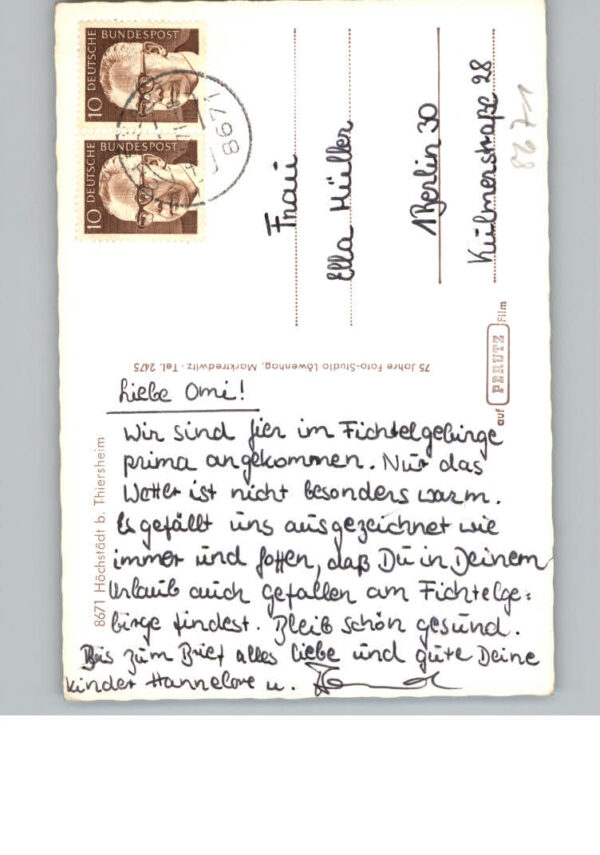 DEUTSCHE BUNDESPOST
10
DEUTSCHE BUNDESPOST
10
8671
Frau
Ella Müller
1 Berlin 30
Kulmerstraße 28
8671
75 Jahre Foto-Studio Löwenhag, Marktredwitz · Tel. 2475
auf PERUTZ Film
8671 Höchstädt b. Thiersheim
Liebe Omi!
Wir sind hier im Fichtelgebirge
prima angekommen. Nur das
Wetter ist nicht besonders warm.
Es gefällt uns ausgezeichnet wie
immer und hoffen, daß Du in Deinem
Urlaub auch gefallen am Fichtelge-
birge findest. Bleib schön gesund.
Bis zum Brief alles liebe und gute Deine
Kinder Hannelore u.